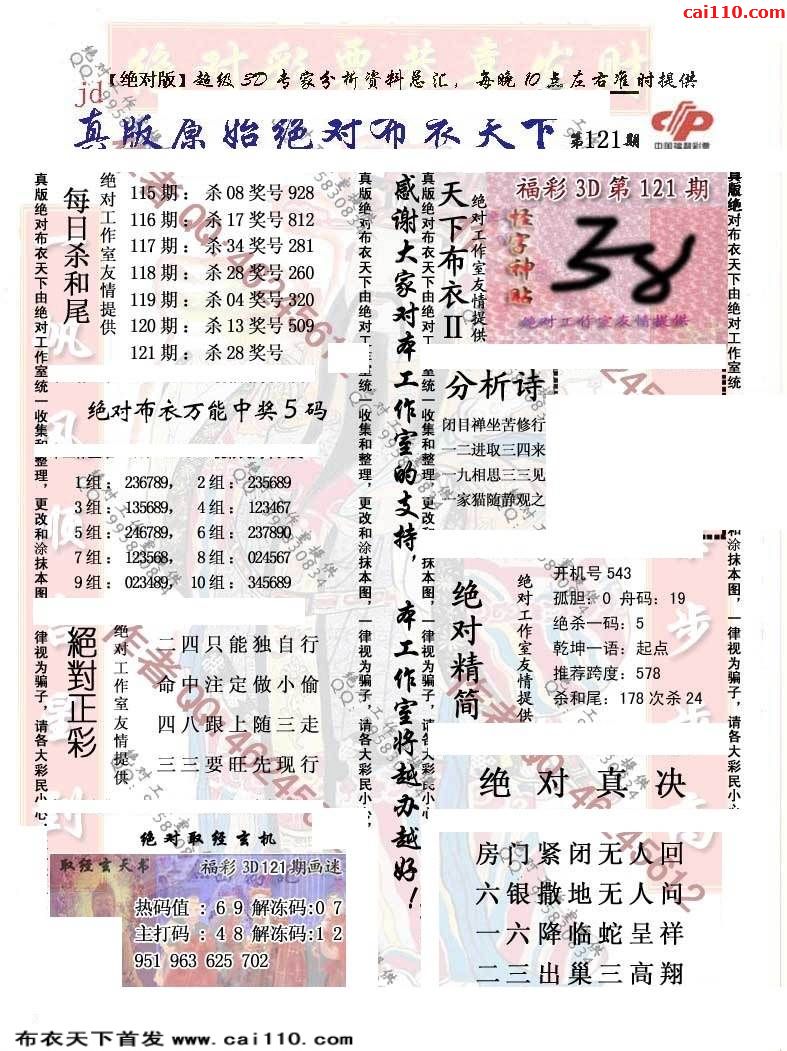 cai110.com
【绝对版】超级3D专家分析资料总汇，每晚10点左右准时提供
jd
真版原始绝对布衣天下 第121期
中国福利彩票
真版绝对布衣天下由绝对工作室统一收集和整理，更改和涂抹本图，一律视为骗子，请各大彩民小心，
每日杀和尾
绝对工作室友情提供
115期：杀08奖号928
116期：杀17奖号812
117期：杀34奖号281
118期：杀28奖号260
119期：杀04奖号320
120期：杀13奖号509
121期：杀28奖号
绝对布衣万能中奖5码
1组：236789， 2组：235689
3组：135689， 4组：123467
5组：246789， 6组：237890
7组：123568， 8组：024567
9组：023489， 10组：345689
絕對正彩
绝对工作室友情提供
二四只能独自行
命中注定做小偷
四八跟上随三走
三三要旺先现行
绝对取经玄机
取经玄天书
福彩3D121期画迷
热码值：69解冻码:07
主打码：48解冻码:12
951 963 625 702
真版绝对布衣天下由绝对工作室统一收集和整理，更改和涂抹本图，一律视为骗子，请各大彩民小心，
感谢大家对本工作室的支持，本工作室将越办越好！
真版绝对布衣天下由绝对工
室统一收集和整理，更改和涂抹本图，一律视为骗子，请各大彩民小心，
天下布衣II
绝对工作室友情提供
福彩3D第121期
怪字神贴
绝对工作室友情提供
分析诗
闭目禅坐苦修行
一二进取三四来
一九相思三三见
一家猫随静观之
绝对精简
绝对工作室友情提供
开机号543
孤胆：0 舟码：19
绝杀一码：5
乾坤一语：起点
推荐跨度：578
杀和尾：178次杀24
绝对真决
房门紧闭无人回
六银撒地无人问
一六降临蛇呈祥
二三出巢三高翔
真版绝对布衣天下由绝对工作室统一
和涂抹本图，一律视为骗子，请各大彩民小心
布衣天下首发 www.cai110.com